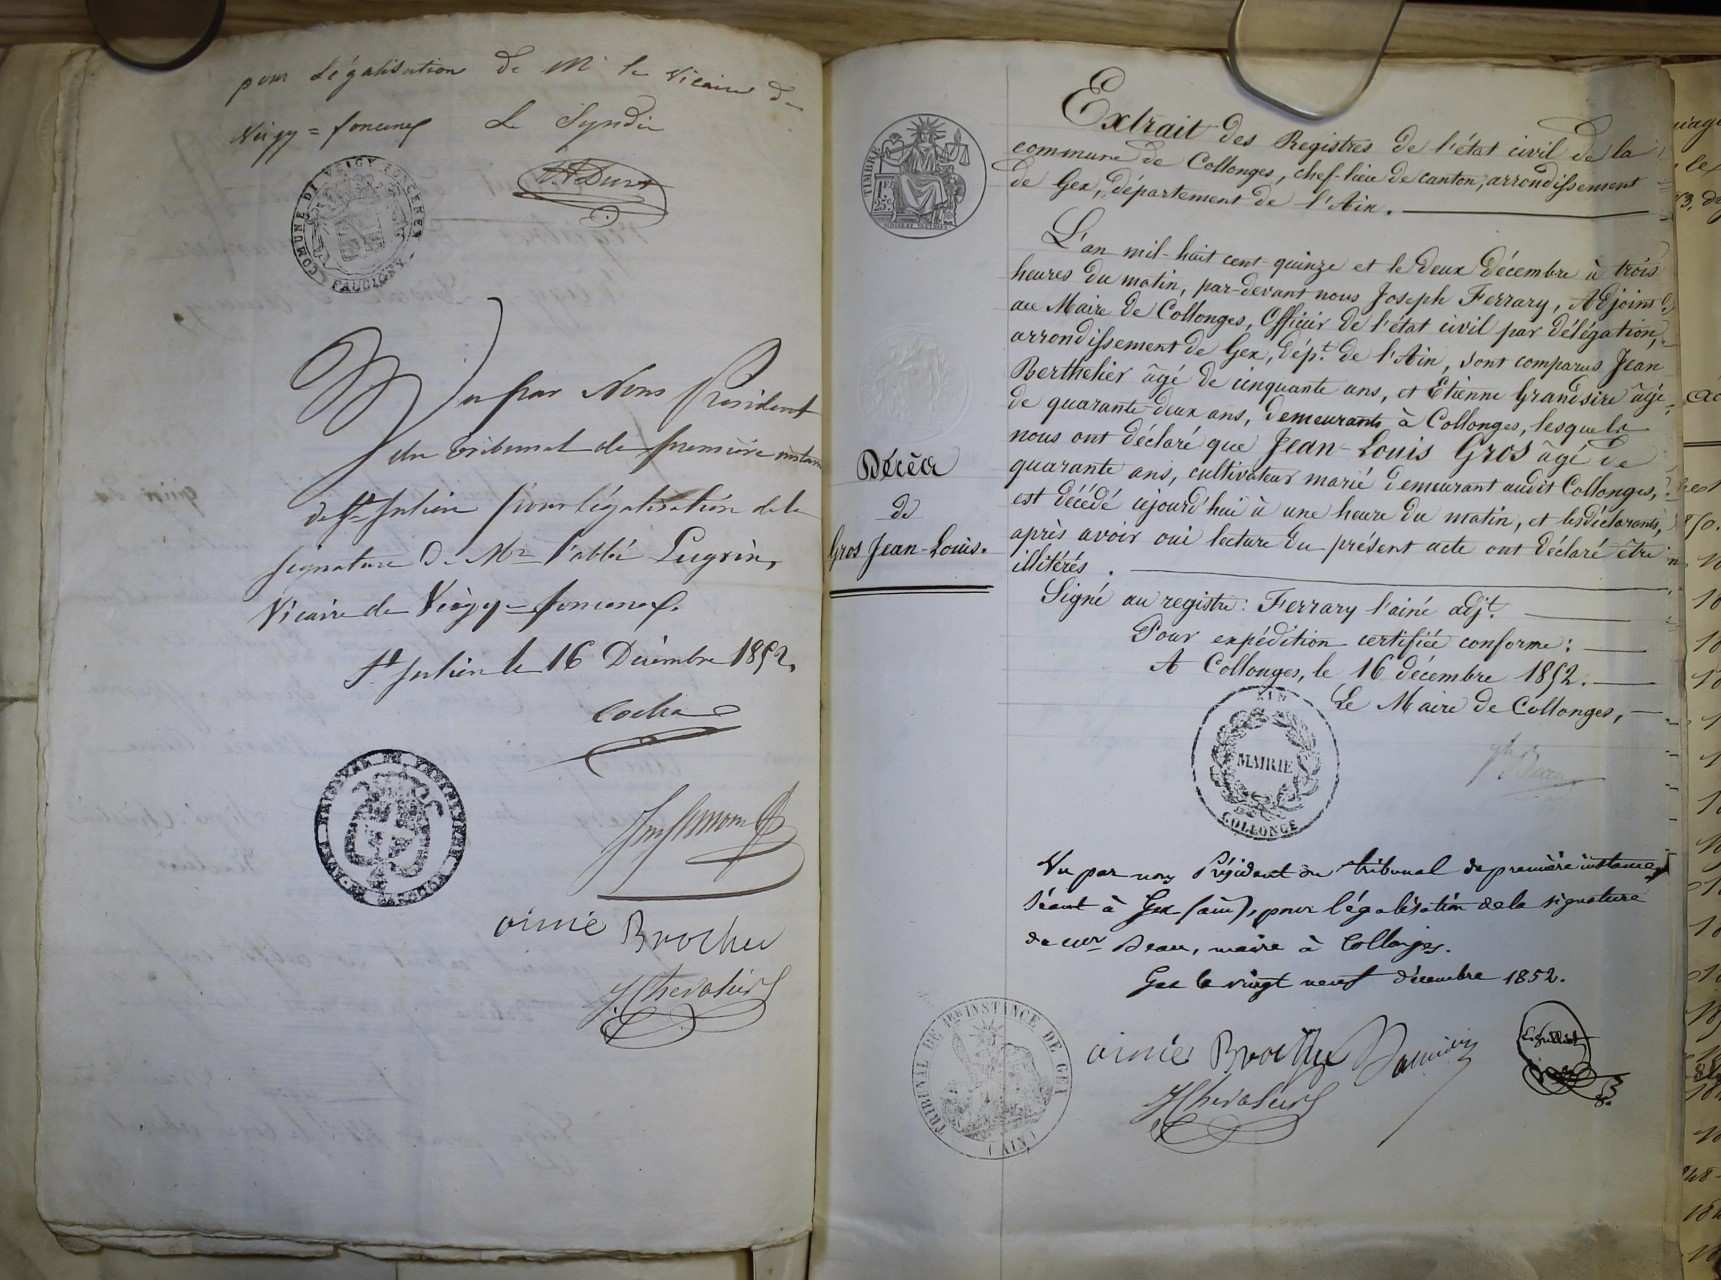 pour Légalisation de Mr le Vicaire de
Veigy = foncenex Le Syndic
COMUNE DI VEIGY FONCENEX
FAUCIGNY
Vu par Nous Président
du tribunal de première instance
de St Julien pour légalisation de la
signature de Mr l'abbé Pugrin,
Vicaire de Veigy = foncenex.
St Julien le 16 Décembre 1852,
aimé Brocher
J. Chevalier
TIMBRE
Extrait des Registres de l'état civil de la
commune de Collonges, chef-lieu de canton, arrondissement
de Gex, département de l'Ain.
L'an mil-huit cent-quinze et le deux décembre à trois
heures du matin, par-devant nous Joseph Ferrary, Adjoint
au Maire de Collonges, Officier de l'état civil par délégation,
arrondissement de Gex, dépt. de l'Ain, sont comparus Jean
Berthelier âgé de cinquante ans, et Etienne Grandsire âgé
de quarante-deux ans, demeurants à Collonges, lesquels
nous ont déclaré que Jean-Louis Gros âgé de
quarante ans, cultivateur marié demeurant audit Collonges,
est décédé cejourd'hui à une heure du matin, et les déclarants,
après avoir oui lecture du présent acte ont déclaré être
illitérés.
Décès
de
Gros Jean-Louis.
Signé au registre: Ferrary l'ainé adjt.
Pour expédition certifiée conforme:
A Collonges, le 16 décembre 1852.
Le Maire de Collonges,
AIN
MAIRIE
COLLONGE
Vu par nous Président du tribunal de première instance
séant à Gex (ain), pour légalisation de la signature
de Mr Beau, maire à Collonges.
Gex le vingt neuf décembre 1852.
TRIBUNAL DE 1ERE INSTANCE DE GEX
(AIN)
aimé Brocher
J. Chevalier